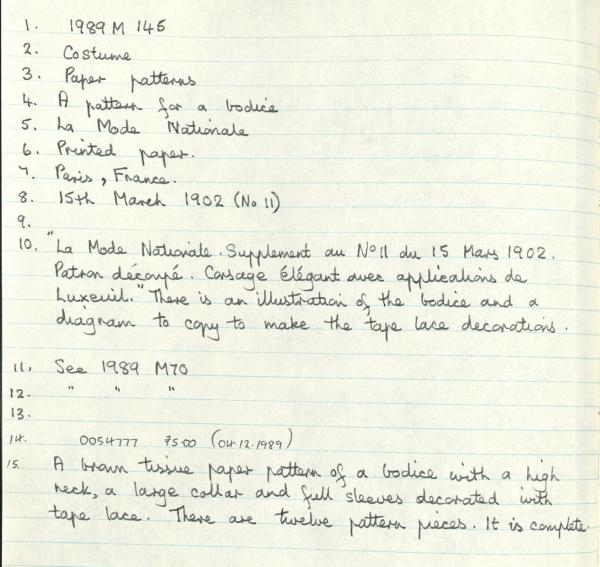 1. 1989 M 145
2. Costume
3. Paper patterns
4. A pattern for a bodice
5. La Mode Nationale
6. Printed paper.
7. Paris, France.
8. 15th March 1902 (No 11)
9.
10. "La Mode Nationale. Supplement au No 11 du 15 Mars 1902.
Patron découpé. Corsage élégant avec applications de
Luxeuil." There is an illustration of the bodice and a
diagram to copy to make the tape lace decorations.
11. See 1989 M70
12. " " "
13.
14. 0054777 75.00 (04.12.1989)
15. A brown tissue paper pattern of a bodice with a high
neck, a large collar and full sleeves decorated with
tape lace. There are twelve pattern pieces. It is complete.